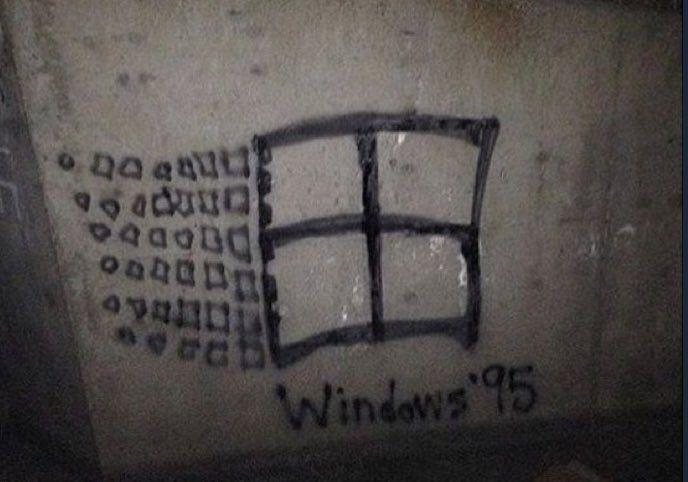 Windows '95